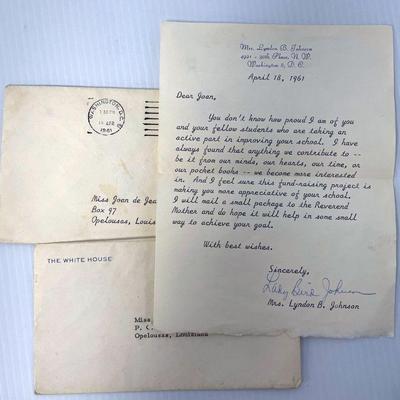 Mrs. Lyndon B. Johnson
4921 - 30th Place, N. W.
Washington 8, D. C.
April 18, 1961
Dear Joan,
You don't know how proud I am of you
and your fellow students who are taking an
active part in improving your school. I have
always found that anything we contribute to --
be it from our minds, our hearts, our time, or
our pocket books -- we become more interested
in. And I feel sure this fund-raising project is
making you more appreciative of your school.
I will mail a small package to the Reverend
Mother and do hope it will help in some small
way to achieve your goal.
With best wishes.
Sincerely,
Lady Bird Johnson
Mrs. Lyndon B. Johnson
WASHINGTON, D.C.
APR
1961
Miss Joan de Jea
Box 97
Opelousas, Louis
THE WHITE HOUSE
Miss
P. O.
Opelousas, Louisiana